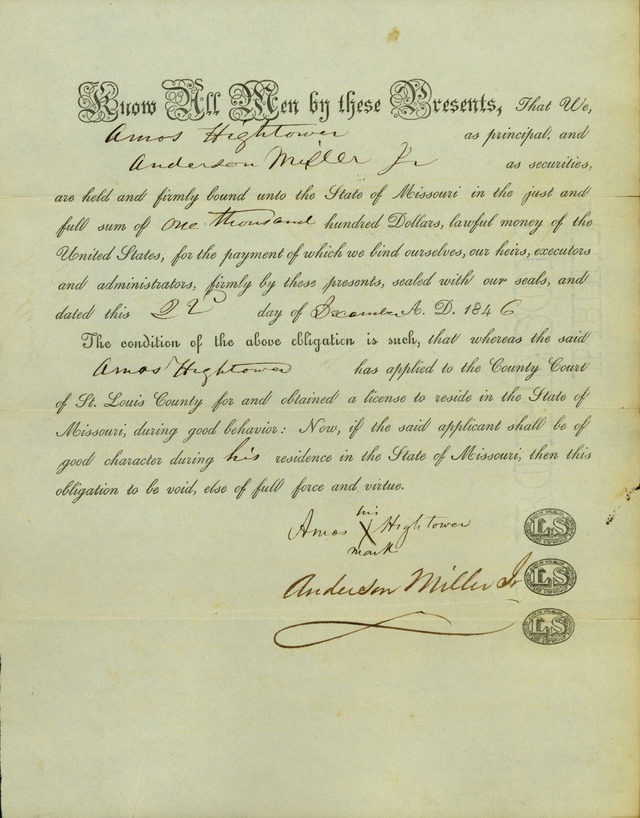 Know All Men by these Presents, That We,
Amos Hightower as principal, and
Anderson Miller Jr as securities,
are held and firmly bound unto the State of Missouri in the just and
full sum of One thousand hundred Dollars, lawful money of the
United States, for the payment of which we bind ourselves, our heirs, executors
and administrators, firmly by these presents, sealed with our seals, and
dated this day of December A. D. 1846
The condition of the above obligation is such, that whereas the said
Amos Hightower has applied to the County Court
of St. Louis County for and obtained a license to reside in the State of
Missouri, during good behavior: Now, if the said applicant shall be of
good character during his residence in the State of Missouri, then this
obligation to be void, else of full force and virtue.
his
Amos X Hightower
mark
LS
Anderson Miller Jr
LS
LS